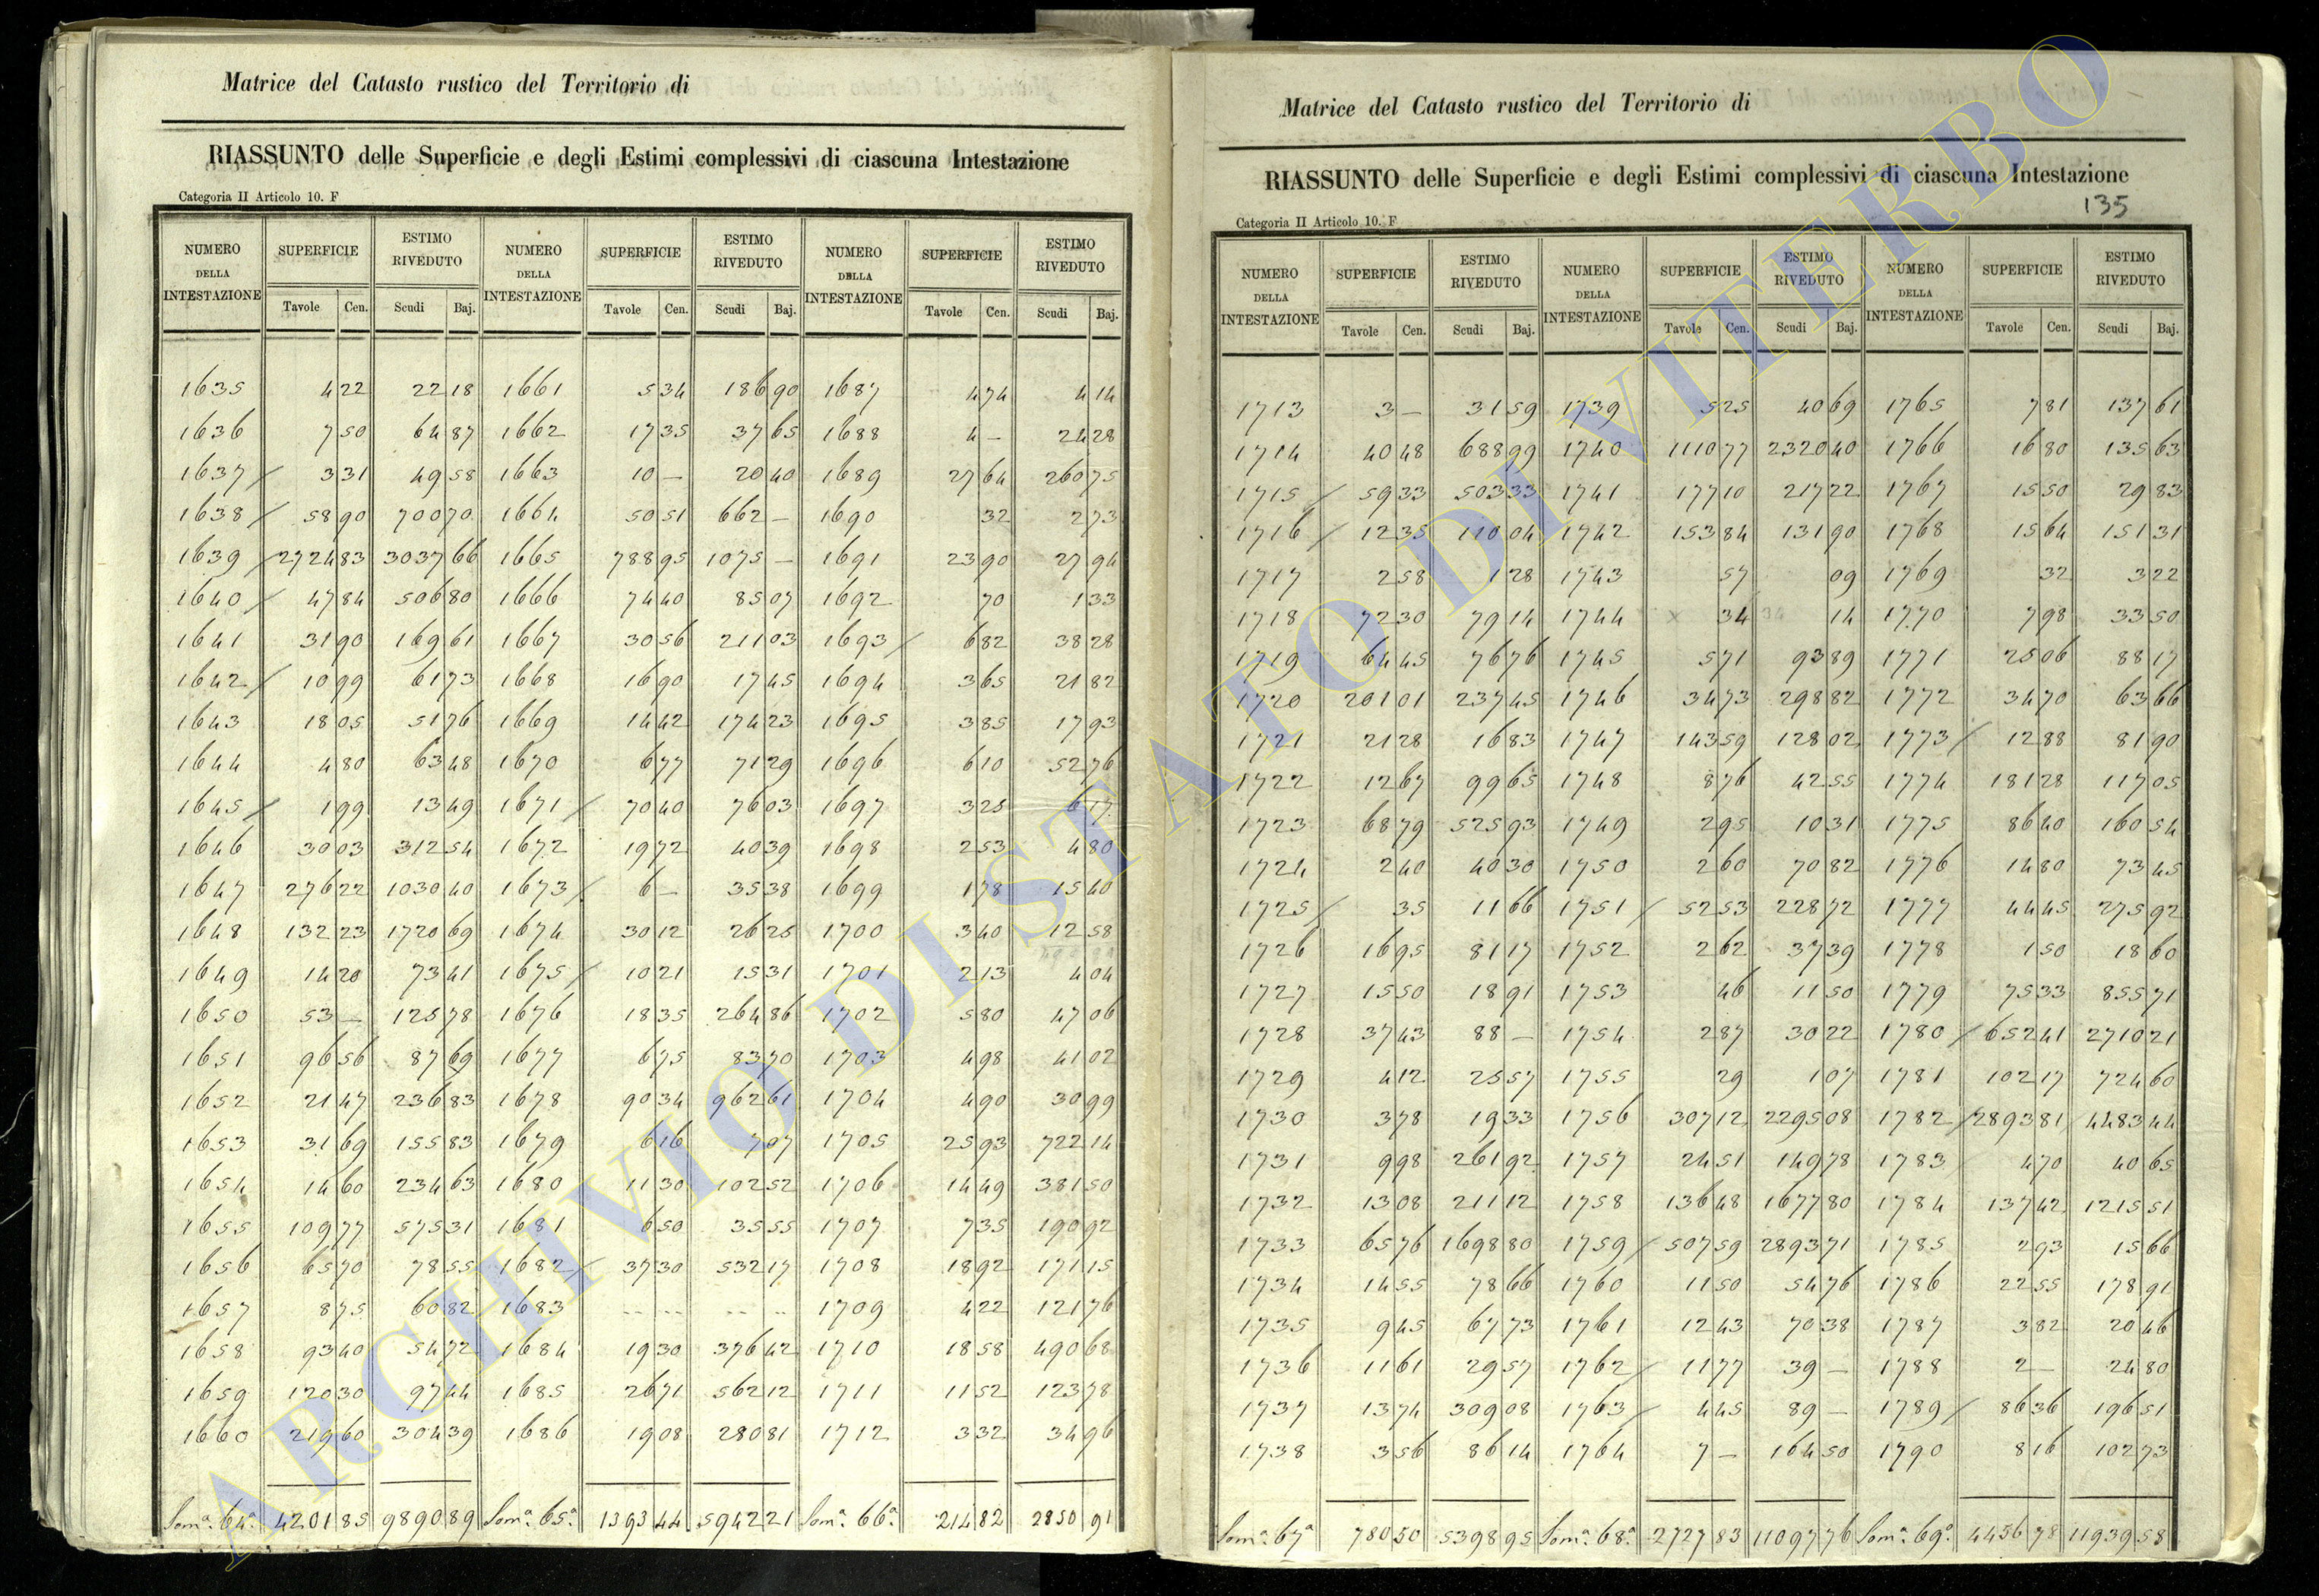 Matrice del Catasto rustico del Territorio di
RIASSUNTO delle Superficie e degli Estimi complessivi di ciascuna Intestazione
Categoria II Articolo 10. F
NUMERO DELLA INTESTAZIONE SUPERFICIE ESTIMO RIVEDUTO NUMERO DELLA INTESTAZIONE SUPERFICIE ESTIMO RIVEDUTO NUMERO DELLA INTESTAZIONE SUPERFICIE ESTIMO RIVEDUTO
Tavole Cen. Scudi Baj. Tavole Cen. Scudi Baj. Tavole Cen. Scudi Baj.
1635 4 22 22 18 1661 5 34 186 90 1687 4 74 4 14
1636 7 50 64 87 1662 17 35 37 65 1688 4 — 24 28
1637 / 3 31 49 58 1663 10 — 20 40 1689 27 64 260 75
1638 / 58 90 700 70 1664 50 51 662 — 1690 32 2 73
1639 / 2724 83 3037 66 1665 788 95 1075 — 1691 23 90 27 94
1640 / 47 84 506 80 1666 74 40 85 07 1692 70 1 33
1641 31 90 169 61 1667 30 56 211 03 1693 / 6 82 38 28
1642 / 10 99 61 73 1668 16 90 17 45 1694 3 65 21 82
1643 18 05 51 76 1669 14 42 174 23 1695 3 85 17 93
1644 4 80 63 48 1670 6 77 71 29 1696 6 10 52 76
1645 / 1 99 13 49 1671 / 70 40 76 03 1697 3 25 6 17
1646 30 03 312 54 1672 19 72 40 39 1698 2 53 4 80
1647 276 22 1030 40 1673 / 6 — 35 38 1699 1 78 15 40
1648 132 23 1720 69 1674 30 12 26 25 1700 3 40 12 58
1649 14 20 73 41 1675 / 10 21 15 31 1701 2 13 4 04
1650 53 — 125 78 1676 18 35 264 86 1702 5 80 47 06
1651 96 56 87 69 1677 6 75 83 70 1703 4 98 41 02
1652 21 47 236 83 1678 90 34 962 61 1704 4 90 30 99
1653 31 69 155 83 1679 6 16 7 97 1705 25 93 722 14
1654 14 60 234 63 1680 11 30 102 52 1706 14 49 381 50
1655 109 77 575 31 1681 6 50 35 55 1707 7 35 190 92
1656 65 70 78 55 1682 / 37 30 532 17 1708 18 92 171 15
1657 8 75 60 82 1683 .. .. .. .. 1709 4 22 121 76
1658 93 40 54 72 1684 19 30 376 42 1710 18 58 490 68
1659 120 30 97 44 1685 26 71 562 12 1711 11 52 123 78
1660 219 60 304 39 1686 19 08 280 81 1712 3 32 34 96
Somª. 64ª. 4201 85 9890 89 Somª. 65ª. 1393 44 5942 21 Somª. 66ª. 214 82 2850 91
Matrice del Catasto rustico del Territorio di
RIASSUNTO delle Superficie e degli Estimi complessivi di ciascuna Intestazione
135
Categoria II Articolo 10. F
NUMERO DELLA INTESTAZIONE SUPERFICIE ESTIMO RIVEDUTO NUMERO DELLA INTESTAZIONE SUPERFICIE ESTIMO RIVEDUTO NUMERO DELLA INTESTAZIONE SUPERFICIE ESTIMO RIVEDUTO
Tavole Cen. Scudi Baj. Tavole Cen. Scudi Baj. Tavole Cen. Scudi Baj.
1713 3 — 31 59 1739 5 25 40 69 1765 7 81 137 61
1714 40 48 688 99 1740 1110 77 2320 40 1766 16 80 135 63
1715 / 59 33 503 33 1741 177 10 217 22 1767 15 50 29 83
1716 / 12 35 110 04 1742 153 84 131 90 1768 15 64 151 31
1717 2 58 1 28 1743 57 09 1769 32 3 22
1718 72 30 79 14 1744 x 34 34 14 1770 7 98 33 50
1719 64 45 76 76 1745 5 71 93 89 1771 25 06 88 17
1720 201 01 237 45 1746 34 73 298 82 1772 34 70 63 66
1721 21 28 16 83 1747 143 59 128 02 1773 / 12 88 81 90
1722 12 67 99 65 1748 8 76 42 55 1774 181 28 117 05
1723 68 79 525 93 1749 2 95 10 31 1775 86 40 160 54
1724 2 40 40 30 1750 2 60 70 82 1776 14 80 73 45
1725 / 35 11 66 1751 / 52 53 228 72 1777 44 45 275 92
1726 16 95 81 17 1752 2 62 37 39 1778 1 50 18 60
1727 15 50 18 91 1753 46 11 50 1779 75 33 855 71
1728 37 43 88 — 1754 2 87 30 22 1780 / 652 41 2710 21
1729 4 12 25 57 1755 29 1 07 1781 102 17 724 60
1730 3 78 19 33 1756 307 12 2295 08 1782 / 2893 81 4483 44
1731 9 98 261 92 1757 24 51 149 78 1783 / 4 70 40 65
1732 13 08 211 12 1758 136 48 1677 80 1784 137 42 1215 51
1733 65 76 1698 80 1759 / 507 59 2893 71 1785 2 93 15 66
1734 14 55 78 66 1760 11 50 54 76 1786 22 55 178 91
1735 9 45 67 73 1761 12 43 70 38 1787 3 82 20 46
1736 11 61 29 57 1762 / 11 77 39 — 1788 2 — 24 80
1737 13 74 309 08 1763 / 4 45 89 — 1789 / 86 36 196 51
1738 3 56 86 14 1764 7 — 164 50 1790 8 16 102 73
Somª. 67ª 780 50 5398 95 Somª. 68ª. 2727 83 11097 76 Somª. 69ª. 4456 78 11939 58
ARCHIVIO DI STATO DI VITERBO